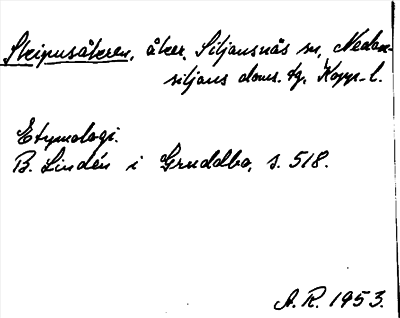 Skipusåkeren, åker, Siljansnäs sn, Nedan-
siljans doms. tg, Kopp. l.
Etymologi.
B. Lindén i Gruddbo, s. 518.
A.R. 1953.